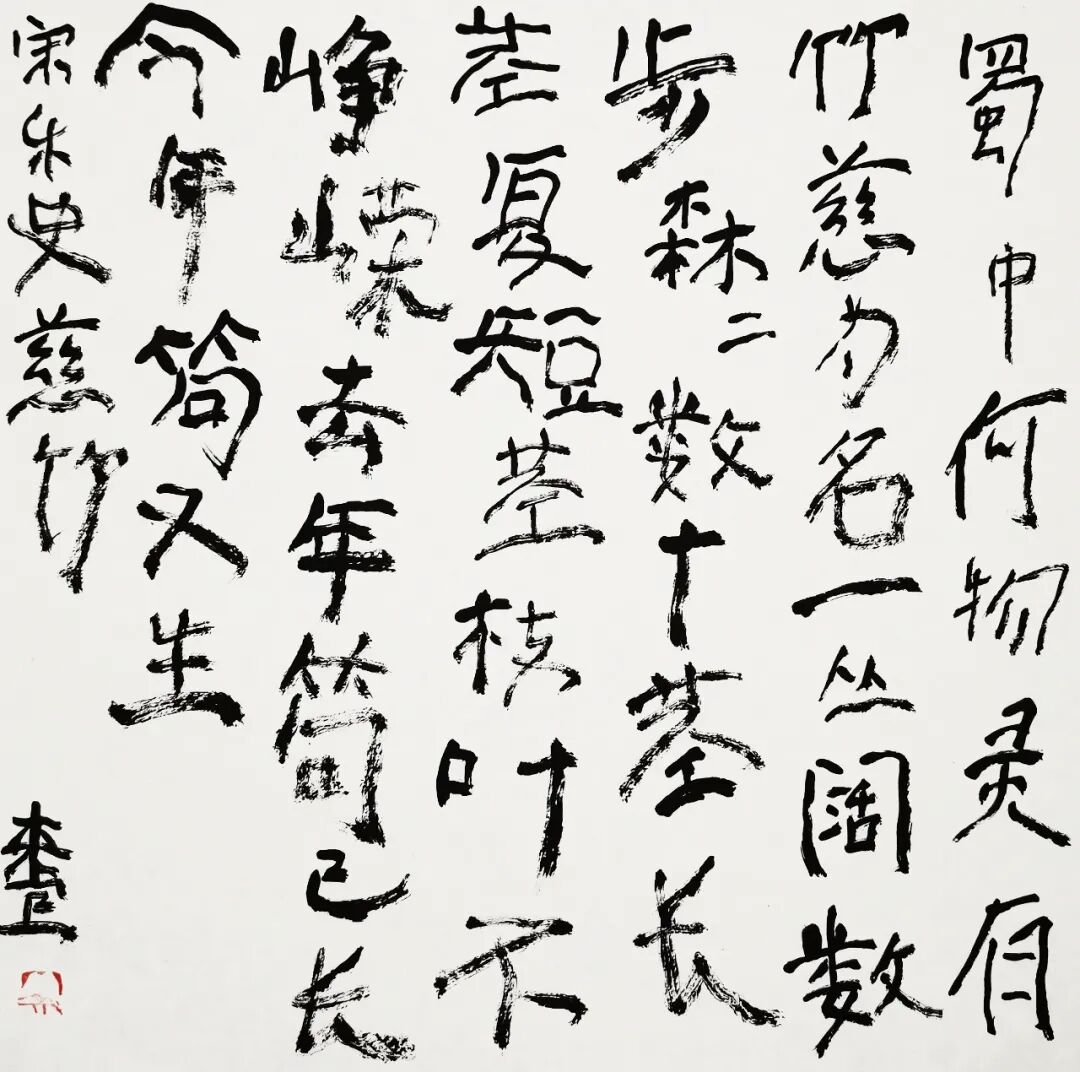 蜀中何物灵有
竹慈为名一丛阔数
步森二数十茎长
茎复短茎枝叶不
峥嵘去年笋已长
今年笋又生
宋朱史慈竹